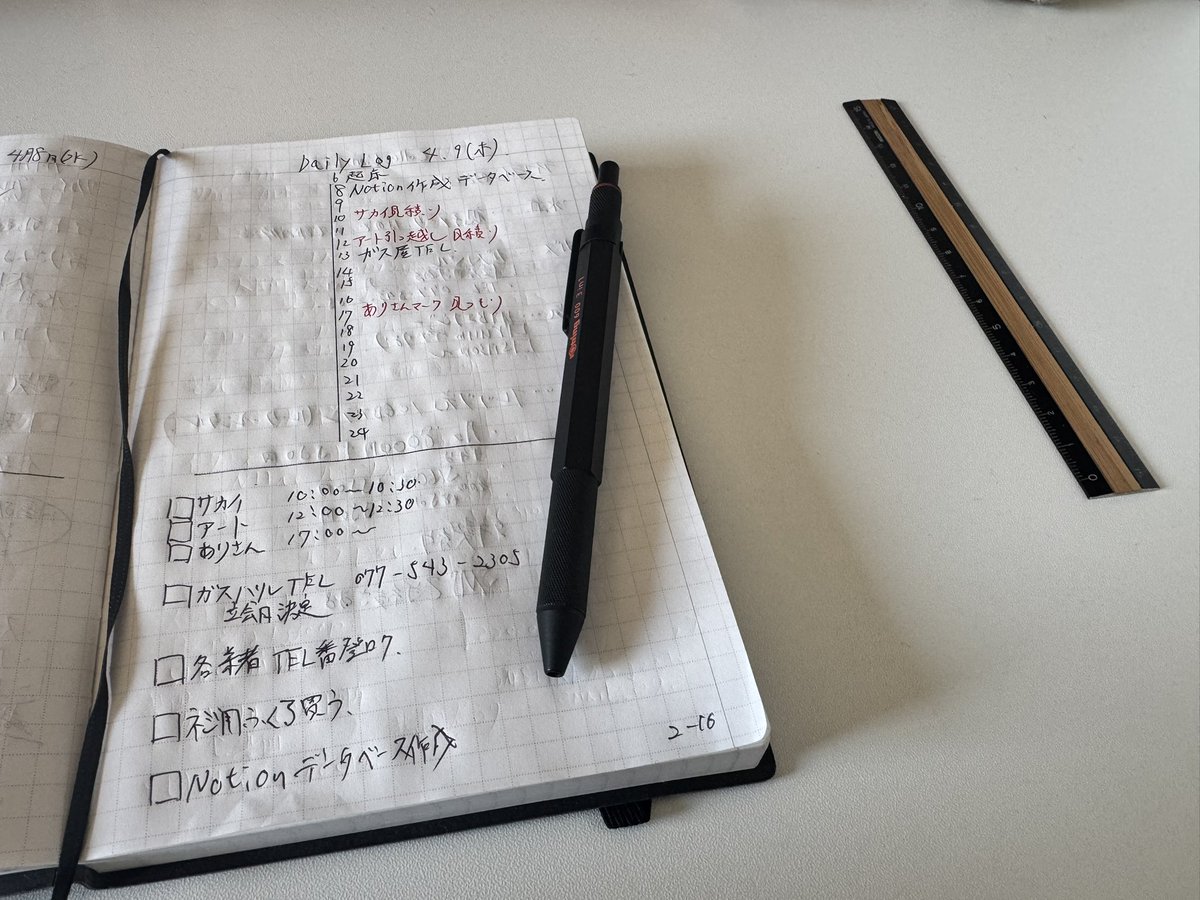 4月8日(水)
Daily Log 4.9(木)
6 起床
8 Notion作成 データベース
9
10 サカイ見積り
11
12 アート引っ越し 見積り
13 ガス屋TEL.
14
15
16
17 ありさんマーク 見つもり
18
19
20
21
22
23
24
サカイ 10:00〜10:30
アート 12:00〜12:30
ありさん 17:00〜
ガスパルTEL 077-543-2305
立会日決定
各業者 TEL番登ロク.
ネジ用ふくろ買う、
Notionデータベース作成
2-16
rotring 600 3in1